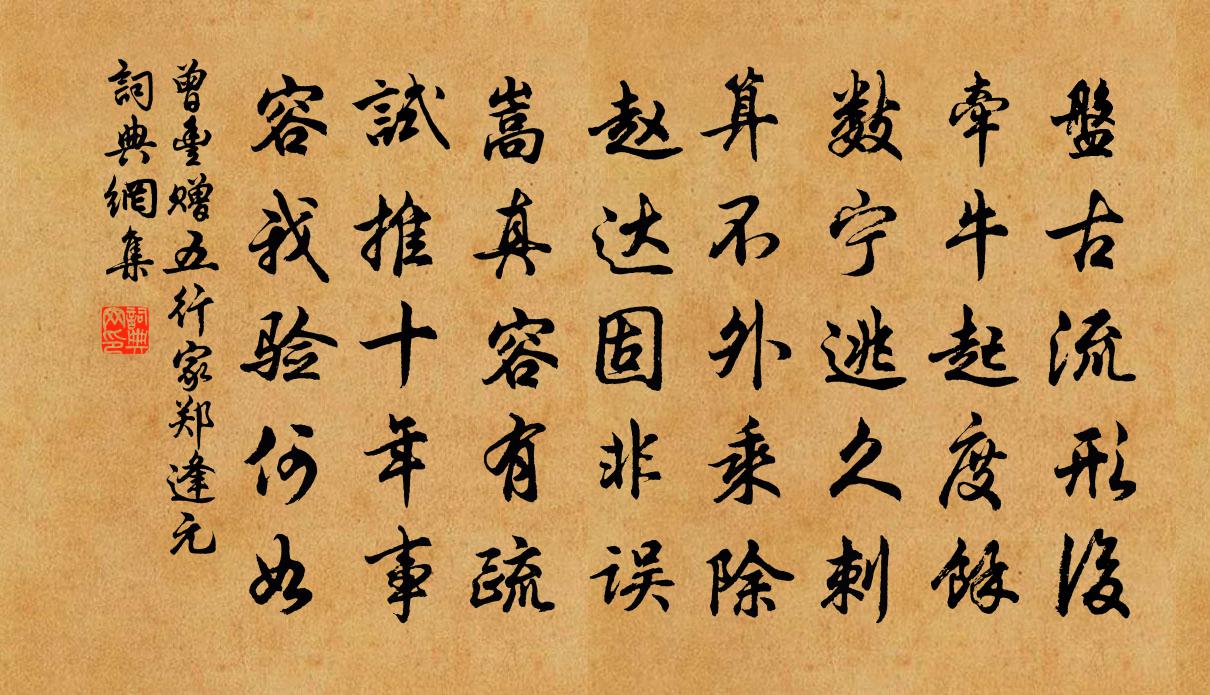 盤古流形後
牽牛起度餘
数宁逃久刺
算不外乘除
赵达固非误
嵩真容有疏
試推十年事
容我验何如
曾豊赠五行家郑逢元
詞典網集